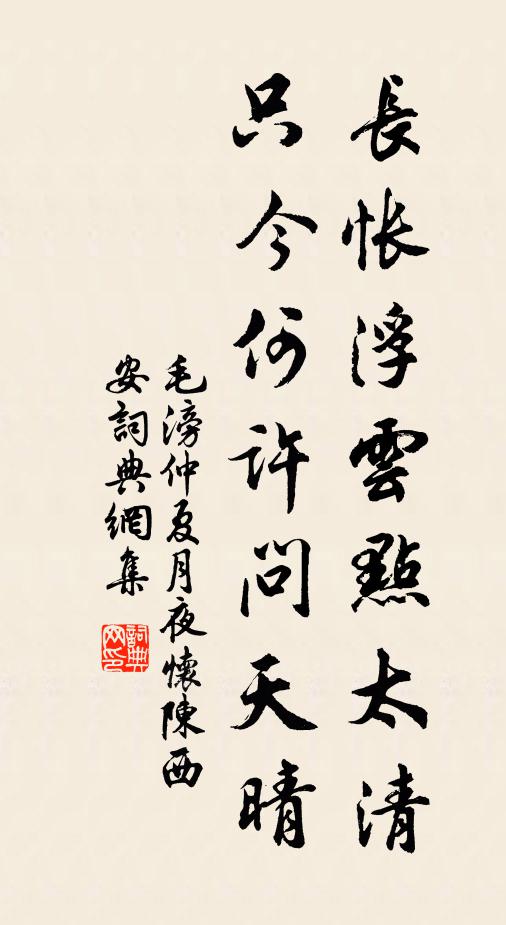 長悵浮雲點太清
只今何許問天晴
毛滂仲夏月夜懷陳西
安詞典網集
詞典
网印